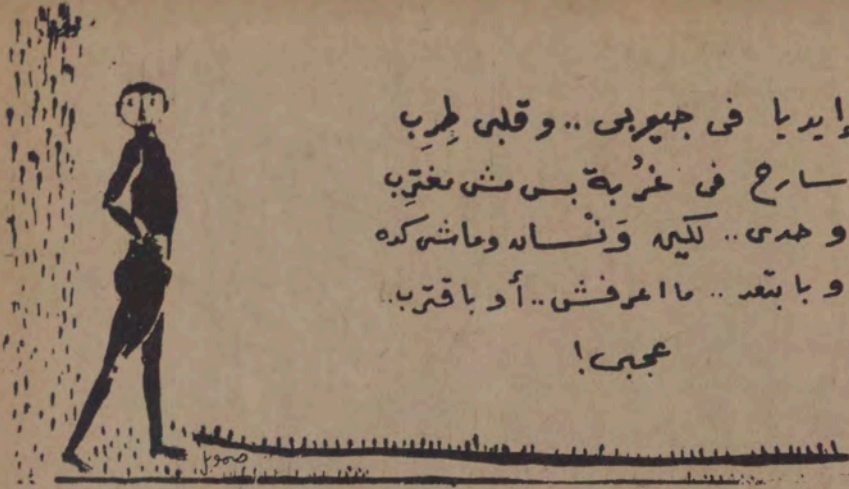 إيديا في جيوبي .. و قلبي طِرِب
سارح في غُربة بس مش مغترِب
وحدي .. لكين وَنْسان وماشي كده
و بابتعد .. ما اعرفش .. أو باقترب ..
عجبي !